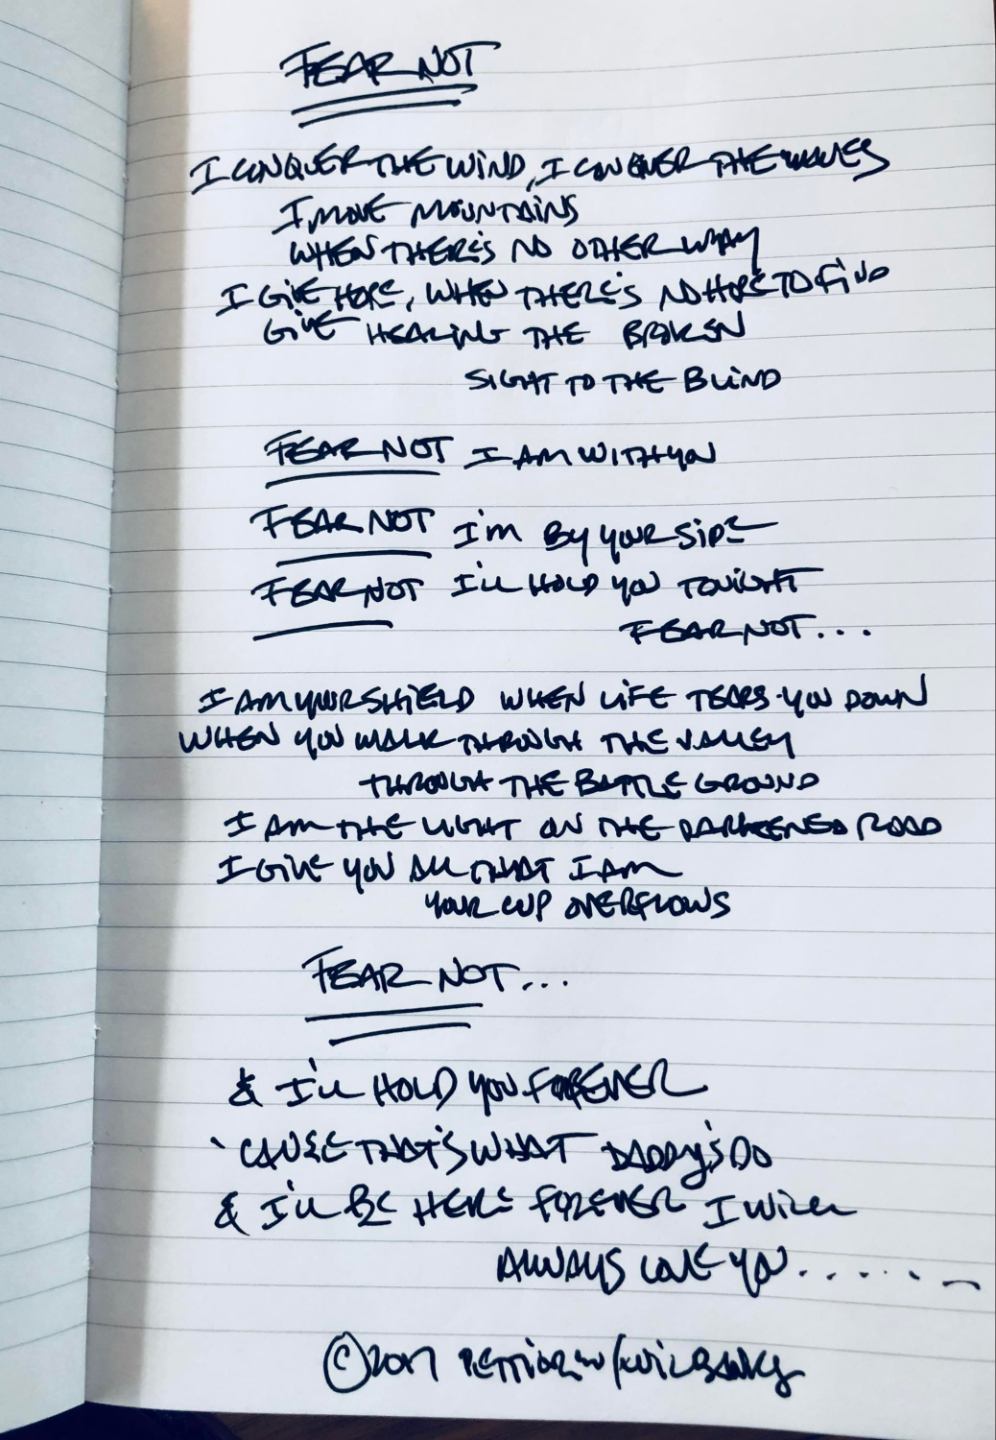 FEAR NOT
I CONQUER THE WIND, I CONQUER THE WAVES
I MOVE MOUNTAINS
WHEN THERE'S NO OTHER WAY
I GIVE HOPE, WHEN THERE'S NO HOPE TO FIND
GIVE HEALING THE BROKEN
SIGHT TO THE BLIND
FEAR NOT I AM WITH YOU
FEAR NOT I'M BY YOUR SIDE
FEAR NOT I'LL HOLD YOU TONIGHT
FEAR NOT...
I AM YOUR SHIELD WHEN LIFE TEARS YOU DOWN
WHEN YOU WALK THROUGH THE VALLEY
THROUGH THE BATTLE GROUND
I AM THE LIGHT ON THE DARKENED ROAD
I GIVE YOU ALL THAT I AM
YOUR CUP OVERFLOWS
FEAR NOT...
& I'LL HOLD YOU FOREVER
'CAUSE THAT'S WHAT DADDY'S DO
& I'LL BE HERE FOREVER I WILL
ALWAYS LOVE YOU.......
© 2017 PETTIGREW/WILBANKS